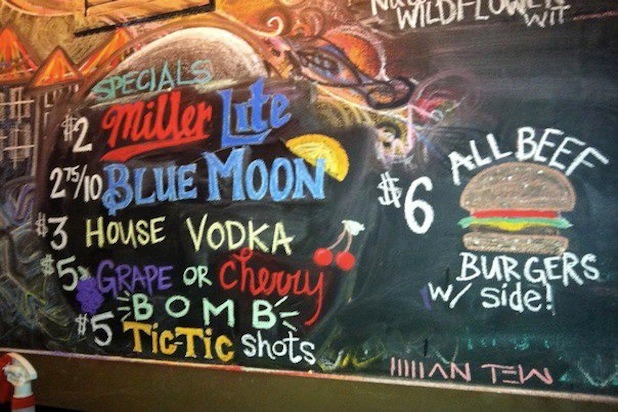 WILDFLOWER WIT
SPECIALS
$2 Miller Lite
2 75/10 BLUE MOON
$3 HOUSE VODKA
$5 GRAPE OR Cherry
BOMB
$5 TIC-TIC shots
$6 ALL BEEF
BURGERS
w/ side!